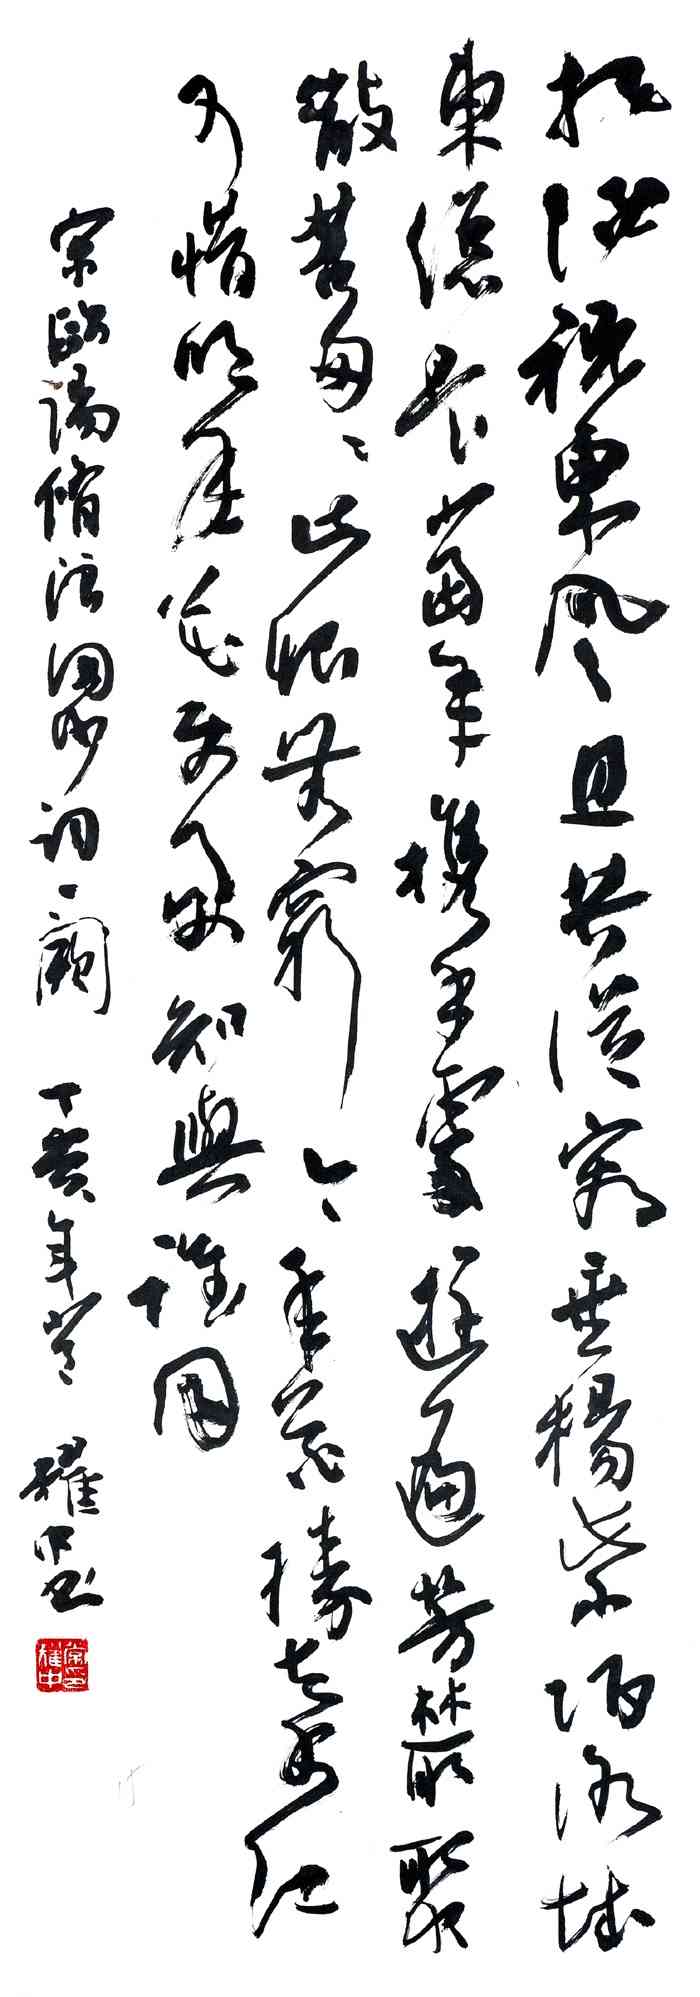 把酒祝東風且共從容垂楊紫陌洛城
東總是當年攜手處遊遍芳叢聚
散苦匆々此恨無窮今年花勝去年紅
可惜明年花更好知與誰同
宋歐陽脩浪淘沙詞一闋 丁亥年 耀中書
耀中